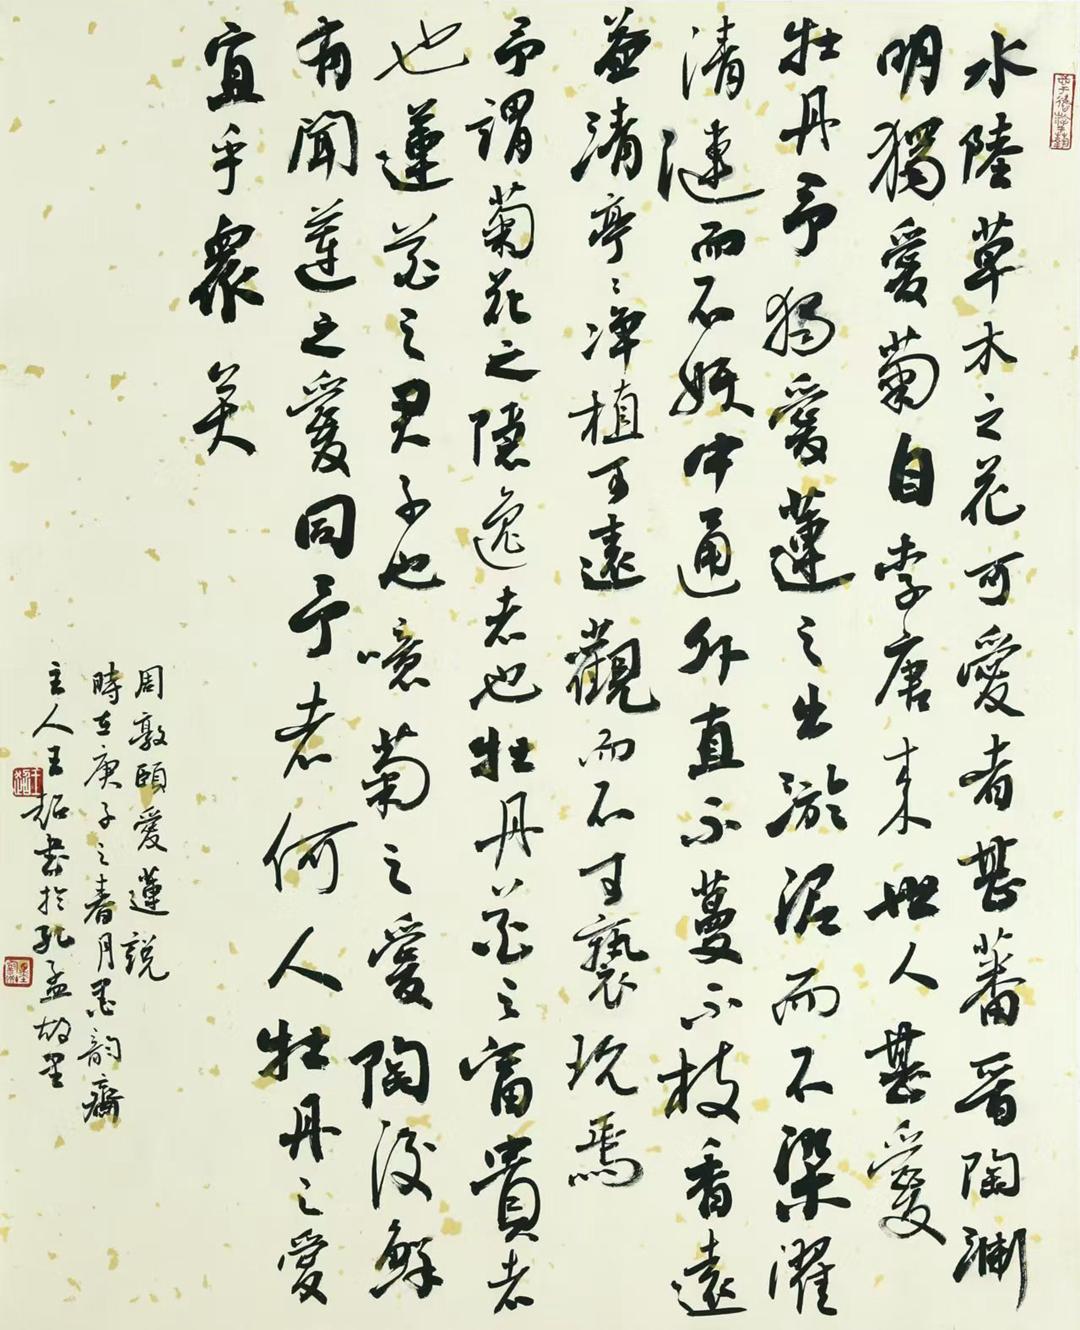 水陸草木之花可愛者甚蕃晉陶淵
明獨愛菊自李唐来世人甚愛
牡丹予獨愛蓮之出淤泥而不染濯
清漣而不妖中通外直不蔓不枝香遠
益清亭〻淨植可遠觀而不可褻玩焉
予謂菊花之隱逸者也牡丹花之富貴者
也蓮花之君子也噫菊之愛陶後鮮
有聞蓮之愛同予者何人牡丹之愛
宜乎衆矣
周敦頤愛蓮説
時在庚子之春月墨韵齋
主人王超書於孔孟故里